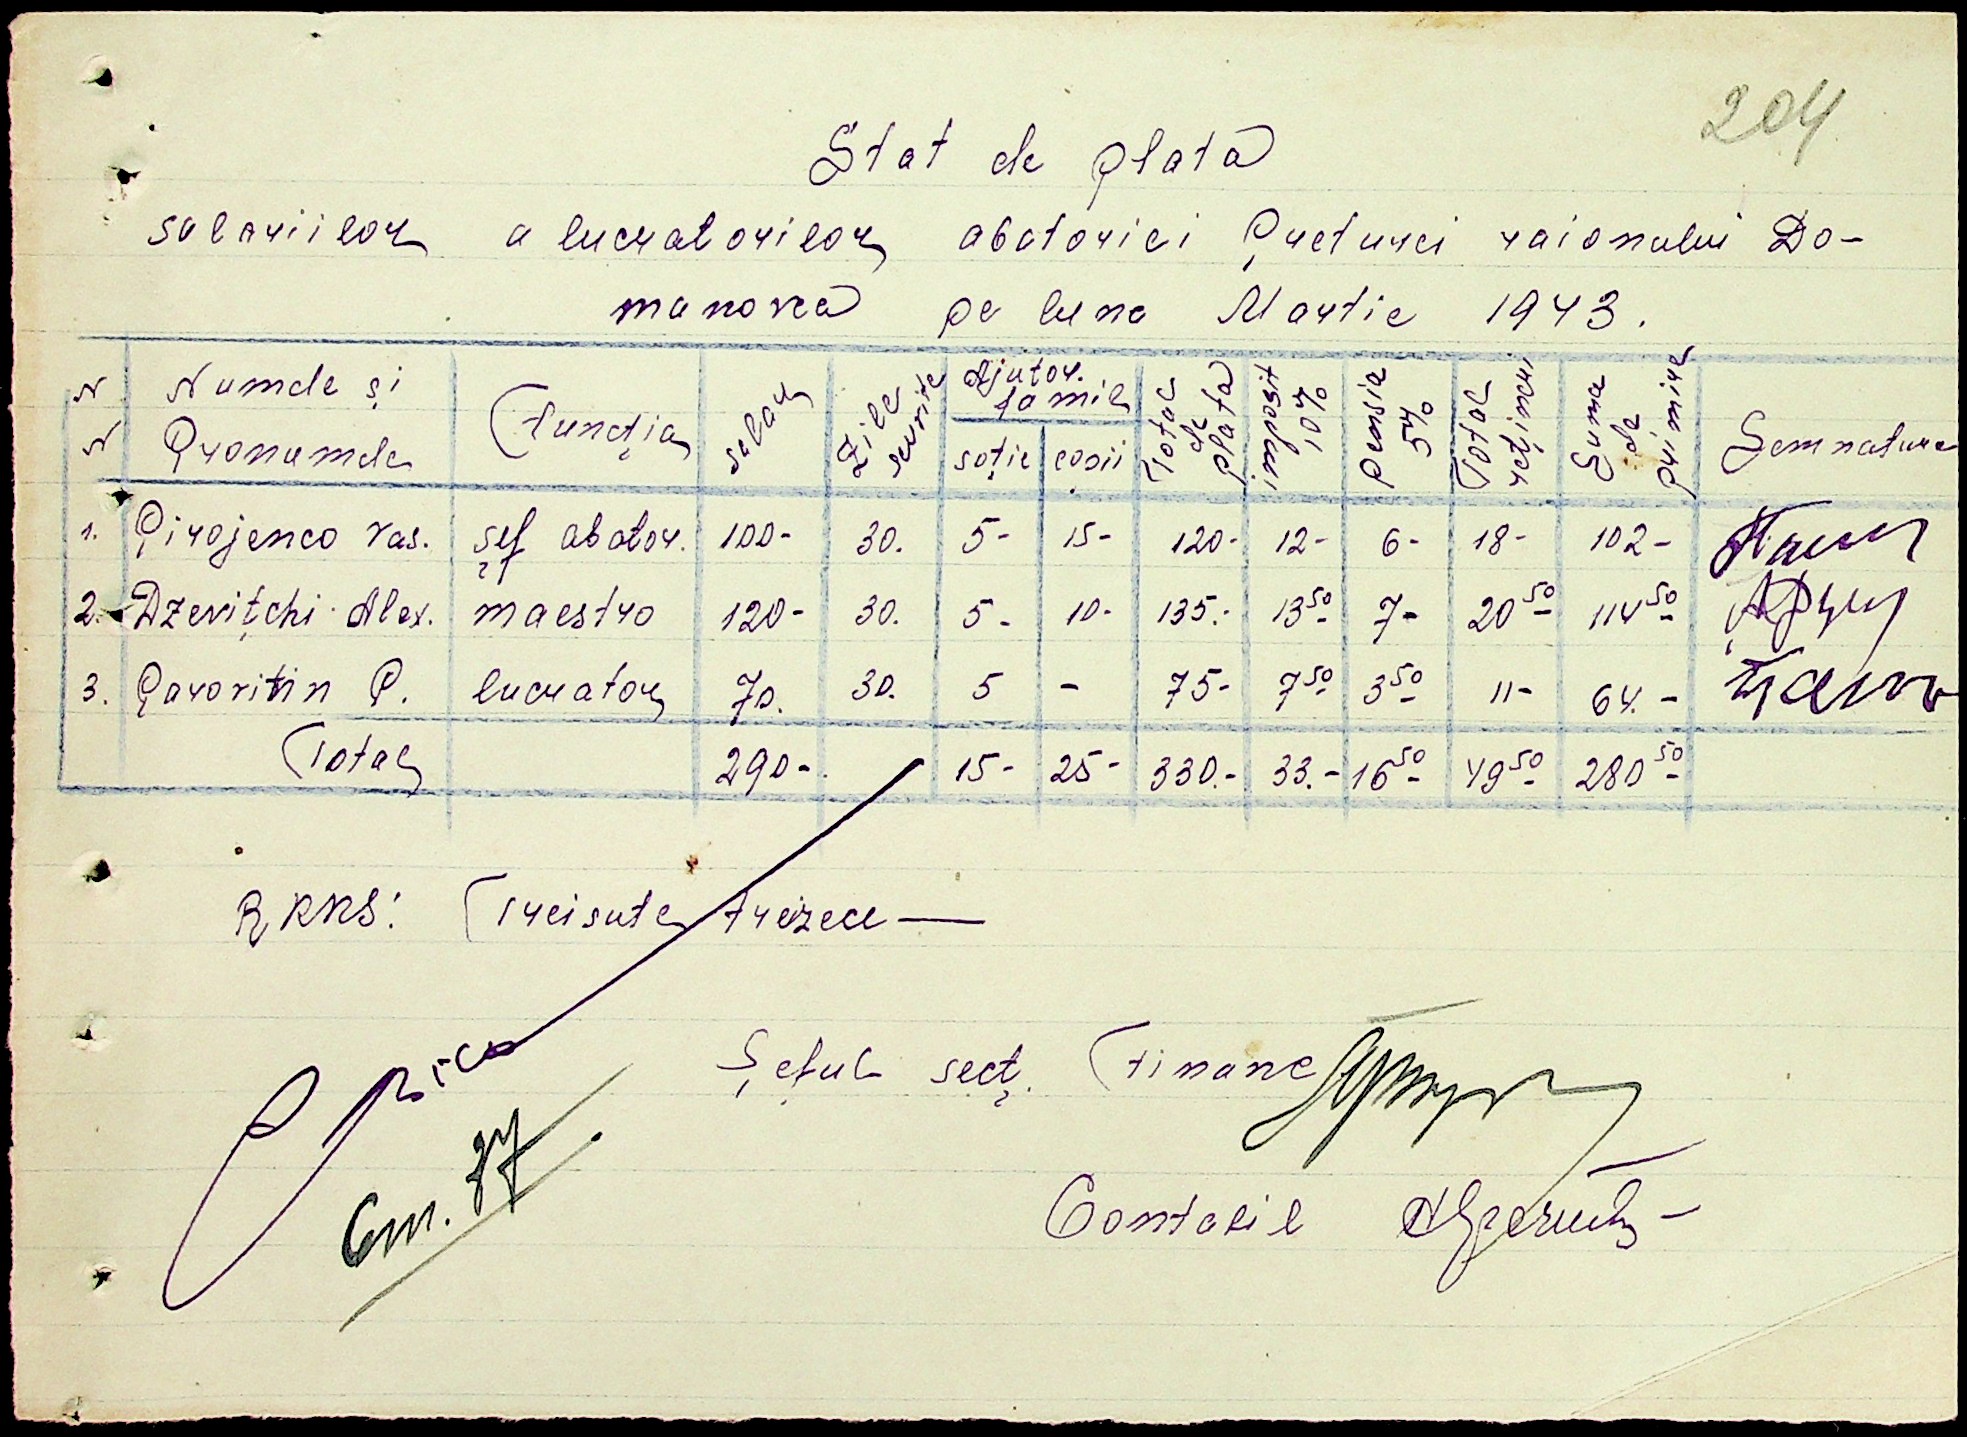 204
Stat de plată
salariilor a lucratorilor abatoriei Preturei raionului Do-
manovca pe luna Martie 1943.
N N Numele și Pronumele Functia salar Zile servite Ajutor. famil soție copii Total de plata imposit 10% pensia 5% Total rețineri Suma de primire Semnatura
1. Pirojenco Vas. șef abator. 100- 30. 5- 15- 120- 12- 6- 18- 102-
2. Dzevițchi Alex. maestro 120- 30. 5- 10- 135.- 13 50 7- 20 50 114 50
3. Pavoritin P. lucrator 70. 30. 5 - 75- 7 50 3 50 11- 64.-
Total 290- 15- 25- 330.- 33.- 16 50 49 50 280 50
RKKS: Treisute treizeci —
Șeful secț. Financ
Contabil